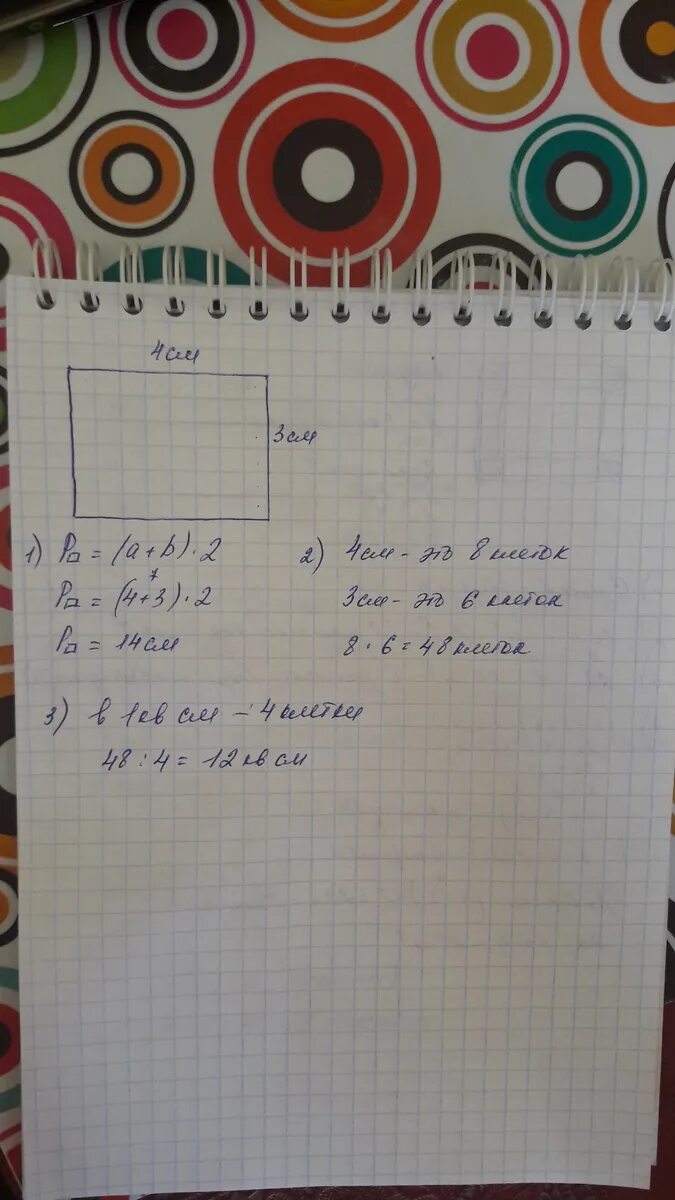 4см
3см
1) P▭ = (a+b)·2
7
P▭ = (4+3)·2
P▭ = 14см
2) 4см - это 8 клеток
3см - это 6 клеток
8·6 = 48 клеток
3) в 1 кв см - 4 клетки
48:4 = 12 кв см